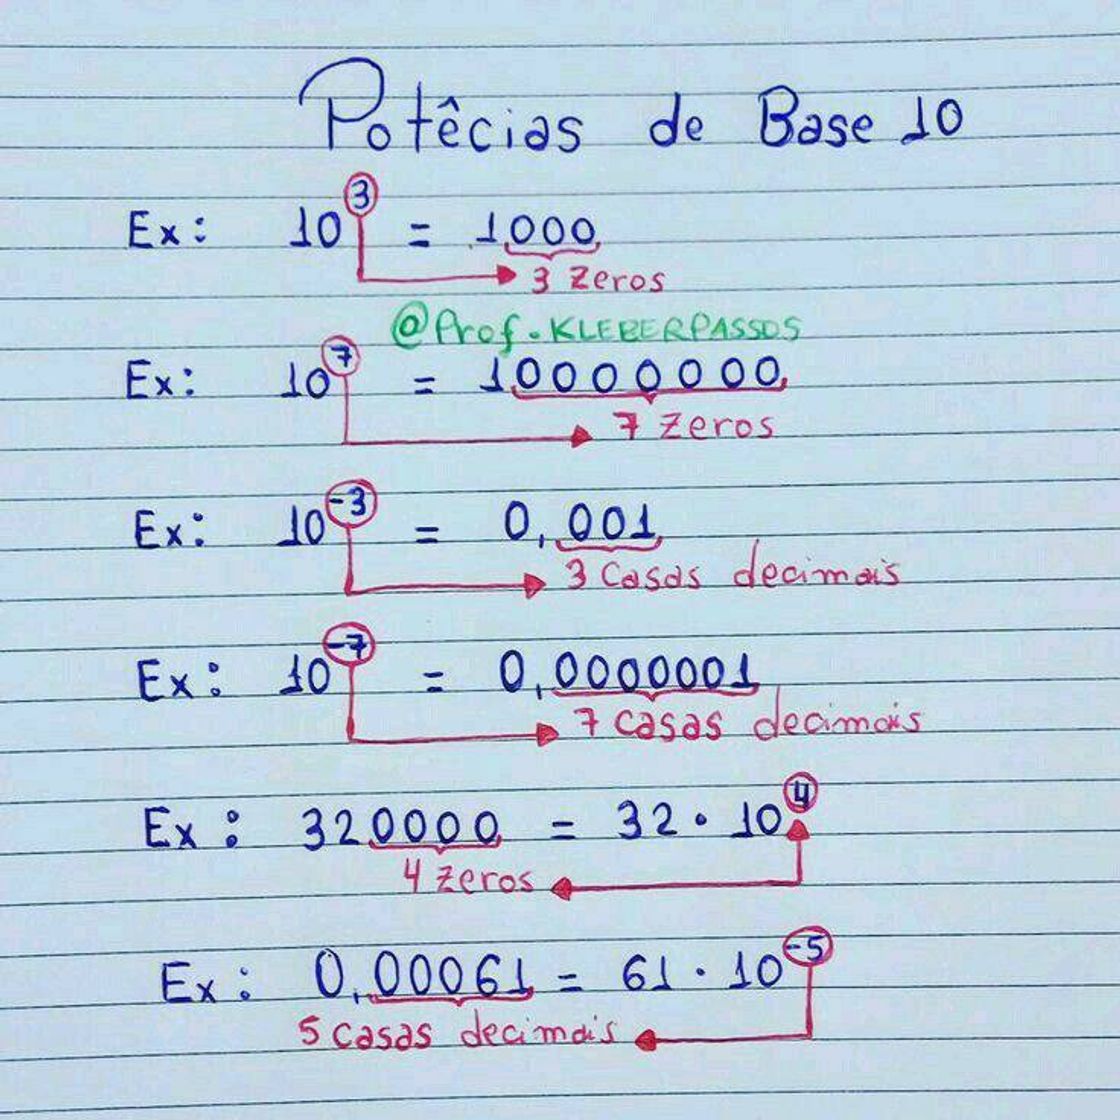 Potêcias de Base 10
Ex: 10³ = 1000
3 zeros
@Prof.KLEBERPASSOS
Ex: 10⁷ = 10000000
7 zeros
Ex: 10⁻³ = 0,001
3 casas decimais
Ex: 10⁻⁷ = 0,0000001
7 casas decimais
Ex: 320000 = 32·10⁴
4 zeros
Ex: 0,00061 = 61·10⁻⁵
5 casas decimais